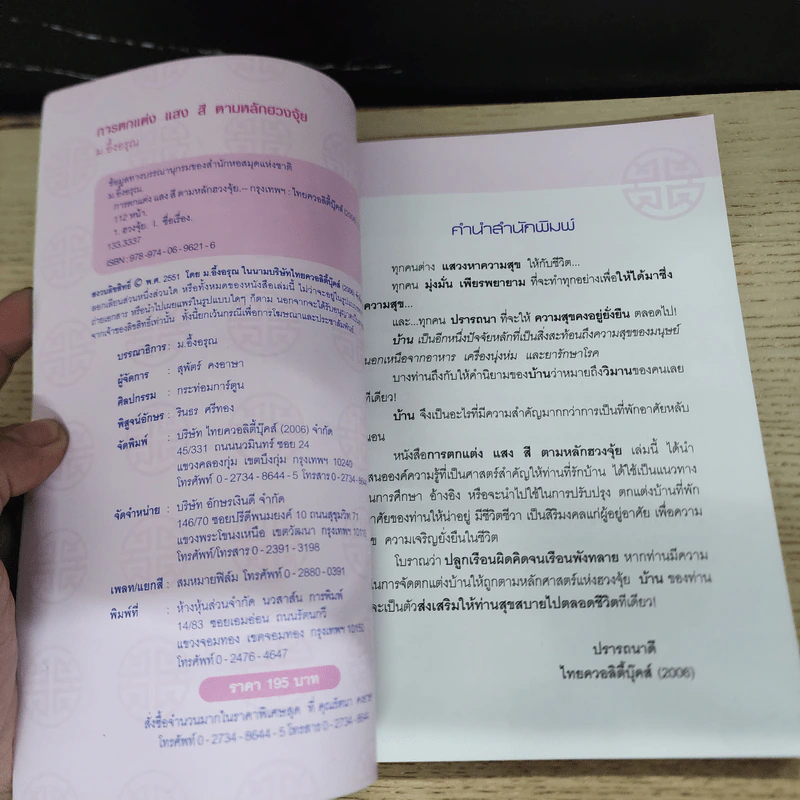 การตกแต่ง แสง สี ตามหลักฮวงจุ้ย
ม.อึ้งอรุณ
ข้อมูลทางบรรณานุกรมของสำนักหอสมุดแห่งชาติ
ม.อึ้งอรุณ.
การตกแต่ง แสง สี ตามหลักฮวงจุ้ย.-- กรุงเทพฯ : ไทยควอลิตี้บุ๊คส์ (2006)
112 หน้า.
1. ฮวงจุ้ย. I. ชื่อเรื่อง.
133.3337
ISBN: 978-974-06-9621-6
สงวนลิขสิทธิ์ © พ.ศ. 2551 โดย ม.อึ้งอรุณ ในนามบริษัทไทยควอลิตี้บุ๊คส์ (2006)
ลอกเลียนส่วนหนึ่งส่วนใด หรือทั้งหมดของหนังสือเล่มนี้ ไม่ว่าจะอยู่ในรูปแบบ
ถ่ายเอกสาร หรือนำไปเผยแพร่ในรูปแบบใดๆ ก็ตาม นอกจากจะได้รับอนุญาต
จากเจ้าของลิขสิทธิ์เท่านั้น ทั้งนี้ยกเว้นกรณีเพื่อการโฆษณาและประชาสัมพันธ์
บรรณาธิการ : ม.อึ้งอรุณ
ผู้จัดการ : สุพัตร์ คงอาษา
ศิลปกรรม : กระท่อมการ์ตูน
พิสูจน์อักษร : รินธร ศรีทอง
จัดพิมพ์ : บริษัท ไทยควอลิตี้บุ๊คส์ (2006) จำกัด
45/331 ถนนนวมินทร์ ซอย 24
แขวงคลองกุ่ม เขตบึงกุ่ม กรุงเทพฯ 10240
โทรศัพท์ 0-2734-8644-5 โทรสาร
จัดจำหน่าย : บริษัท อักษรเงินดี จำกัด
146/70 ซอยปรีดีพนมยงค์ 10 ถนนสุขุมวิท 71
แขวงพระโขนงเหนือ เขตวัฒนา กรุงเทพฯ 10110
โทรศัพท์/โทรสาร 0-2391-3198
เพลท/แยกสี : สมหมายฟิล์ม โทรศัพท์ 0-2880-0391
พิมพ์ที่ : ห้างหุ้นส่วนจำกัด นวสาส์น การพิมพ์
14/83 ซอยเอมอ่อน ถนนรัตนกวี
แขวงจอมทอง เขตจอมทอง กรุงเทพฯ 10150
โทรศัพท์ 0-2476-4647
ราคา 195 บาท
สั่งซื้อจำนวนมากในราคาพิเศษสุด ที่ คุณรัตนา
โทรศัพท์ 0-2734-8644-5 โทรสาร 0-2734
คำนำสำนักพิมพ์
ทุกคนต่าง แสวงหาความสุข ให้กับชีวิต...
ทุกคน มุ่งมั่น เพียรพยายาม ที่จะทำทุกอย่างเพื่อให้ได้มาซึ่ง
ความสุข...
และ...ทุกคน ปรารถนา ที่จะให้ ความสุขคงอยู่ยั่งยืน ตลอดไป!
บ้าน เป็นอีกหนึ่งปัจจัยหลักที่เป็นสิ่งสะท้อนถึงความสุขของมนุษย์
นอกเหนือจากอาหาร เครื่องนุ่งห่ม และยารักษาโรค
บางท่านถึงกับให้คำนิยามของบ้านว่าหมายถึงวิมานของคนเลย
ทีเดียว!
บ้าน จึงเป็นอะไรที่มีความสำคัญมากกว่าการเป็นที่พักอาศัยหลับ
นอน
หนังสือการตกแต่ง แสง สี ตามหลักฮวงจุ้ย เล่มนี้ ได้นำ
เสนอองค์ความรู้ที่เป็นศาสตร์สำคัญให้ท่านที่รักบ้าน ได้ใช้เป็นแนวทาง
ในการศึกษา อ้างอิง หรือจะนำไปใช้ในการปรับปรุง ตกแต่งบ้านที่พัก
อาศัยของท่านให้น่าอยู่ มีชีวิตชีวา เป็นสิริมงคลแก่ผู้อยู่อาศัย เพื่อความ
สุข ความเจริญยั่งยืนในชีวิต
โบราณว่า ปลูกเรือนผิดคิดจนเรือนพังทลาย หากท่านมีความ
ในการจัดตกแต่งบ้านให้ถูกตามหลักศาสตร์แห่งฮวงจุ้ย บ้าน ของท่าน
จะเป็นตัวส่งเสริมให้ท่านสุขสบายไปตลอดชีวิตทีเดียว!
ปรารถนาดี
ไทยควอลิตี้บุ๊คส์ (2006)